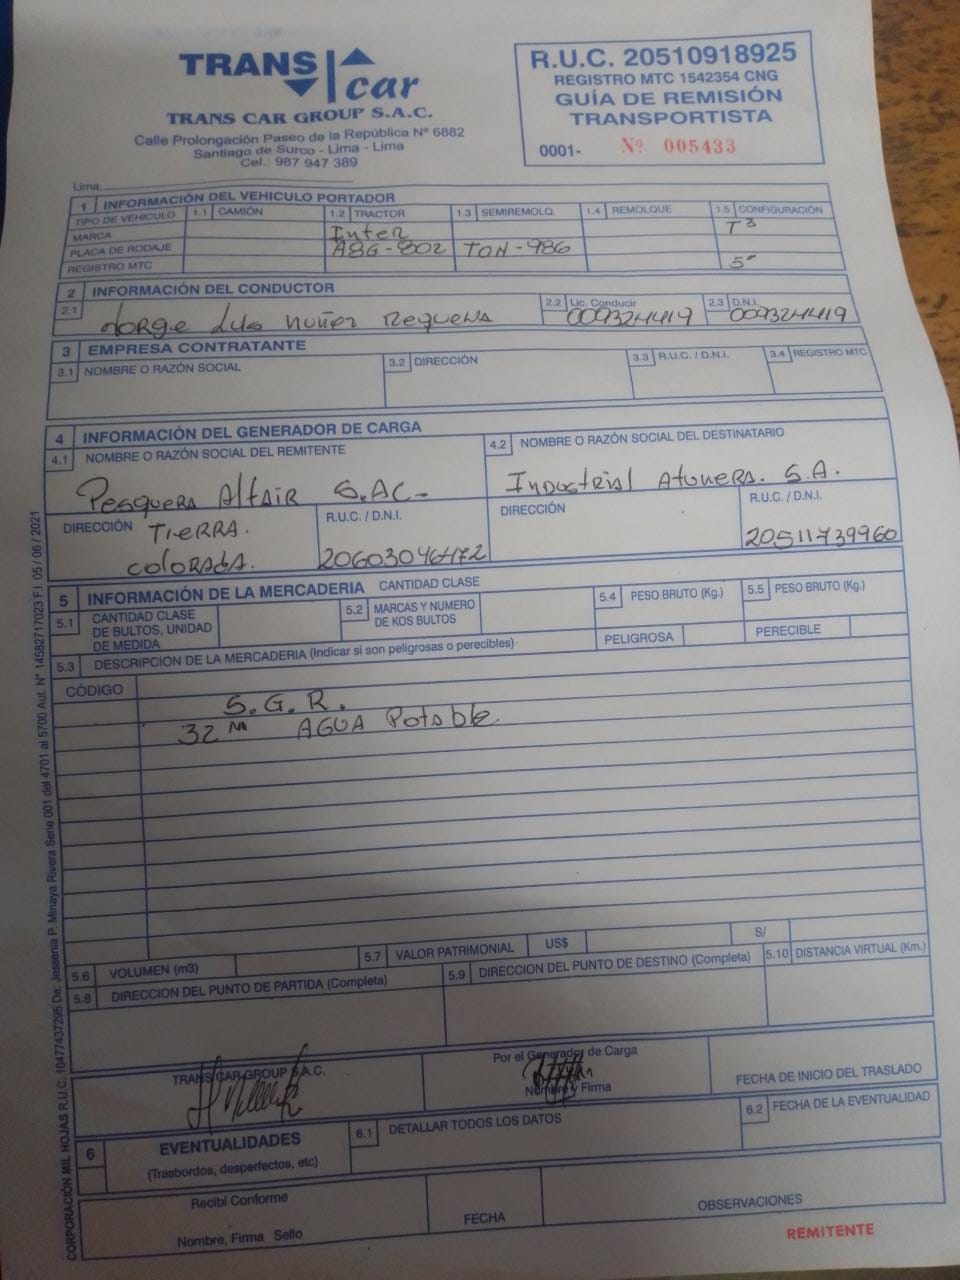 TRANS car
TRANS CAR GROUP S.A.C.
Calle Prolongación Paseo de la República N° 6882
Santiago de Surco - Lima - Lima
Cel.: 987 947 389
R.U.C. 20510918925
REGISTRO MTC 1542354 CNG
GUÍA DE REMISIÓN
TRANSPORTISTA
0001- Nº 005433
Lima,
1 INFORMACIÓN DEL VEHICULO PORTADOR
TIPO DE VEHICULO 1.1 CAMIÓN 1.2 TRACTOR 1.3 SEMIREMOLQ. 1.4 REMOLQUE 1.5 CONFIGURACIÓN
MARCA Inter T3
PLACA DE RODAJE A8G-802 TON-986
REGISTRO MTC 5"
2 INFORMACIÓN DEL CONDUCTOR
2.1 Jorge Luis Nuñez Requena 2.2 Lic. Conducir 009324419 2.3 D.N.I. 009324419
3 EMPRESA CONTRATANTE
3.1 NOMBRE O RAZÓN SOCIAL 3.2 DIRECCIÓN 3.3 R.U.C. / D.N.I. 3.4 REGISTRO MTC
4 INFORMACIÓN DEL GENERADOR DE CARGA
4.1 NOMBRE O RAZÓN SOCIAL DEL REMITENTE 4.2 NOMBRE O RAZÓN SOCIAL DEL DESTINATARIO
Pesquera Altair S.AC. Industrial Atunera. S.A.
DIRECCIÓN TIERRA. R.U.C. / D.N.I. DIRECCIÓN R.U.C. / D.N.I.
COLORADA. 20603046472 20511739960
5 INFORMACIÓN DE LA MERCADERIA CANTIDAD CLASE
5.1 CANTIDAD CLASE DE BULTOS, UNIDAD DE MEDIDA 5.2 MARCAS Y NUMERO DE KOS BULTOS 5.4 PESO BRUTO (Kg.) 5.5 PESO BRUTO (Kg.)
PELIGROSA PERECIBLE
5.3 DESCRIPCION DE LA MERCADERIA (Indicar si son peligrosas o perecibles)
CÓDIGO
S.G.R.
32 M AGUA Potable.
5.6 VOLUMEN (m3) 5.7 VALOR PATRIMONIAL US$ S/
5.8 DIRECCION DEL PUNTO DE PARTIDA (Completa) 5.9 DIRECCION DEL PUNTO DE DESTINO (Completa) 5.10 DISTANCIA VIRTUAL (Km.)
TRANS CAR GROUP S.A.C. Por el Generador de Carga
Nombre y Firma FECHA DE INICIO DEL TRASLADO
6 EVENTUALIDADES 6.1 DETALLAR TODOS LOS DATOS 6.2 FECHA DE LA EVENTUALIDAD
(Trasbordos, desperfectos, etc)
Recibí Conforme
Nombre, Firma Sello FECHA OBSERVACIONES
REMITENTE
CORPORACIÓN MIL HOJAS R.U.C. 10477437295 De: Jessenia P. Minaya Rivera Serie 001 del 4701 al 5700 Aut. N° 14582717023 F.I. 05 / 06 / 2021